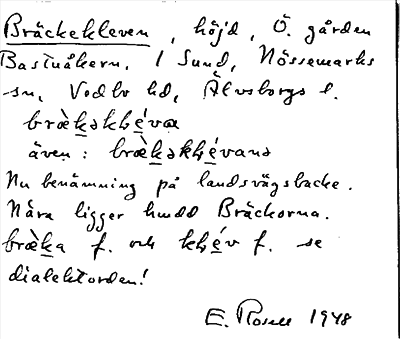 Bräckekleven, höjd, Ö. gården
Bastuåkern, 1 Sund, Nössemarks
-sn, Vedbo hd, Älvsborgs l.
bræ̀kəkḷéva
även: bræ̀kəkḷévanə
Nu benämning på landsvägsbacke.
Nära ligger hmdd Bräckorna.
bræ̀ka f. och kḷév f. se
dialektorden!
E. Rosell 1948